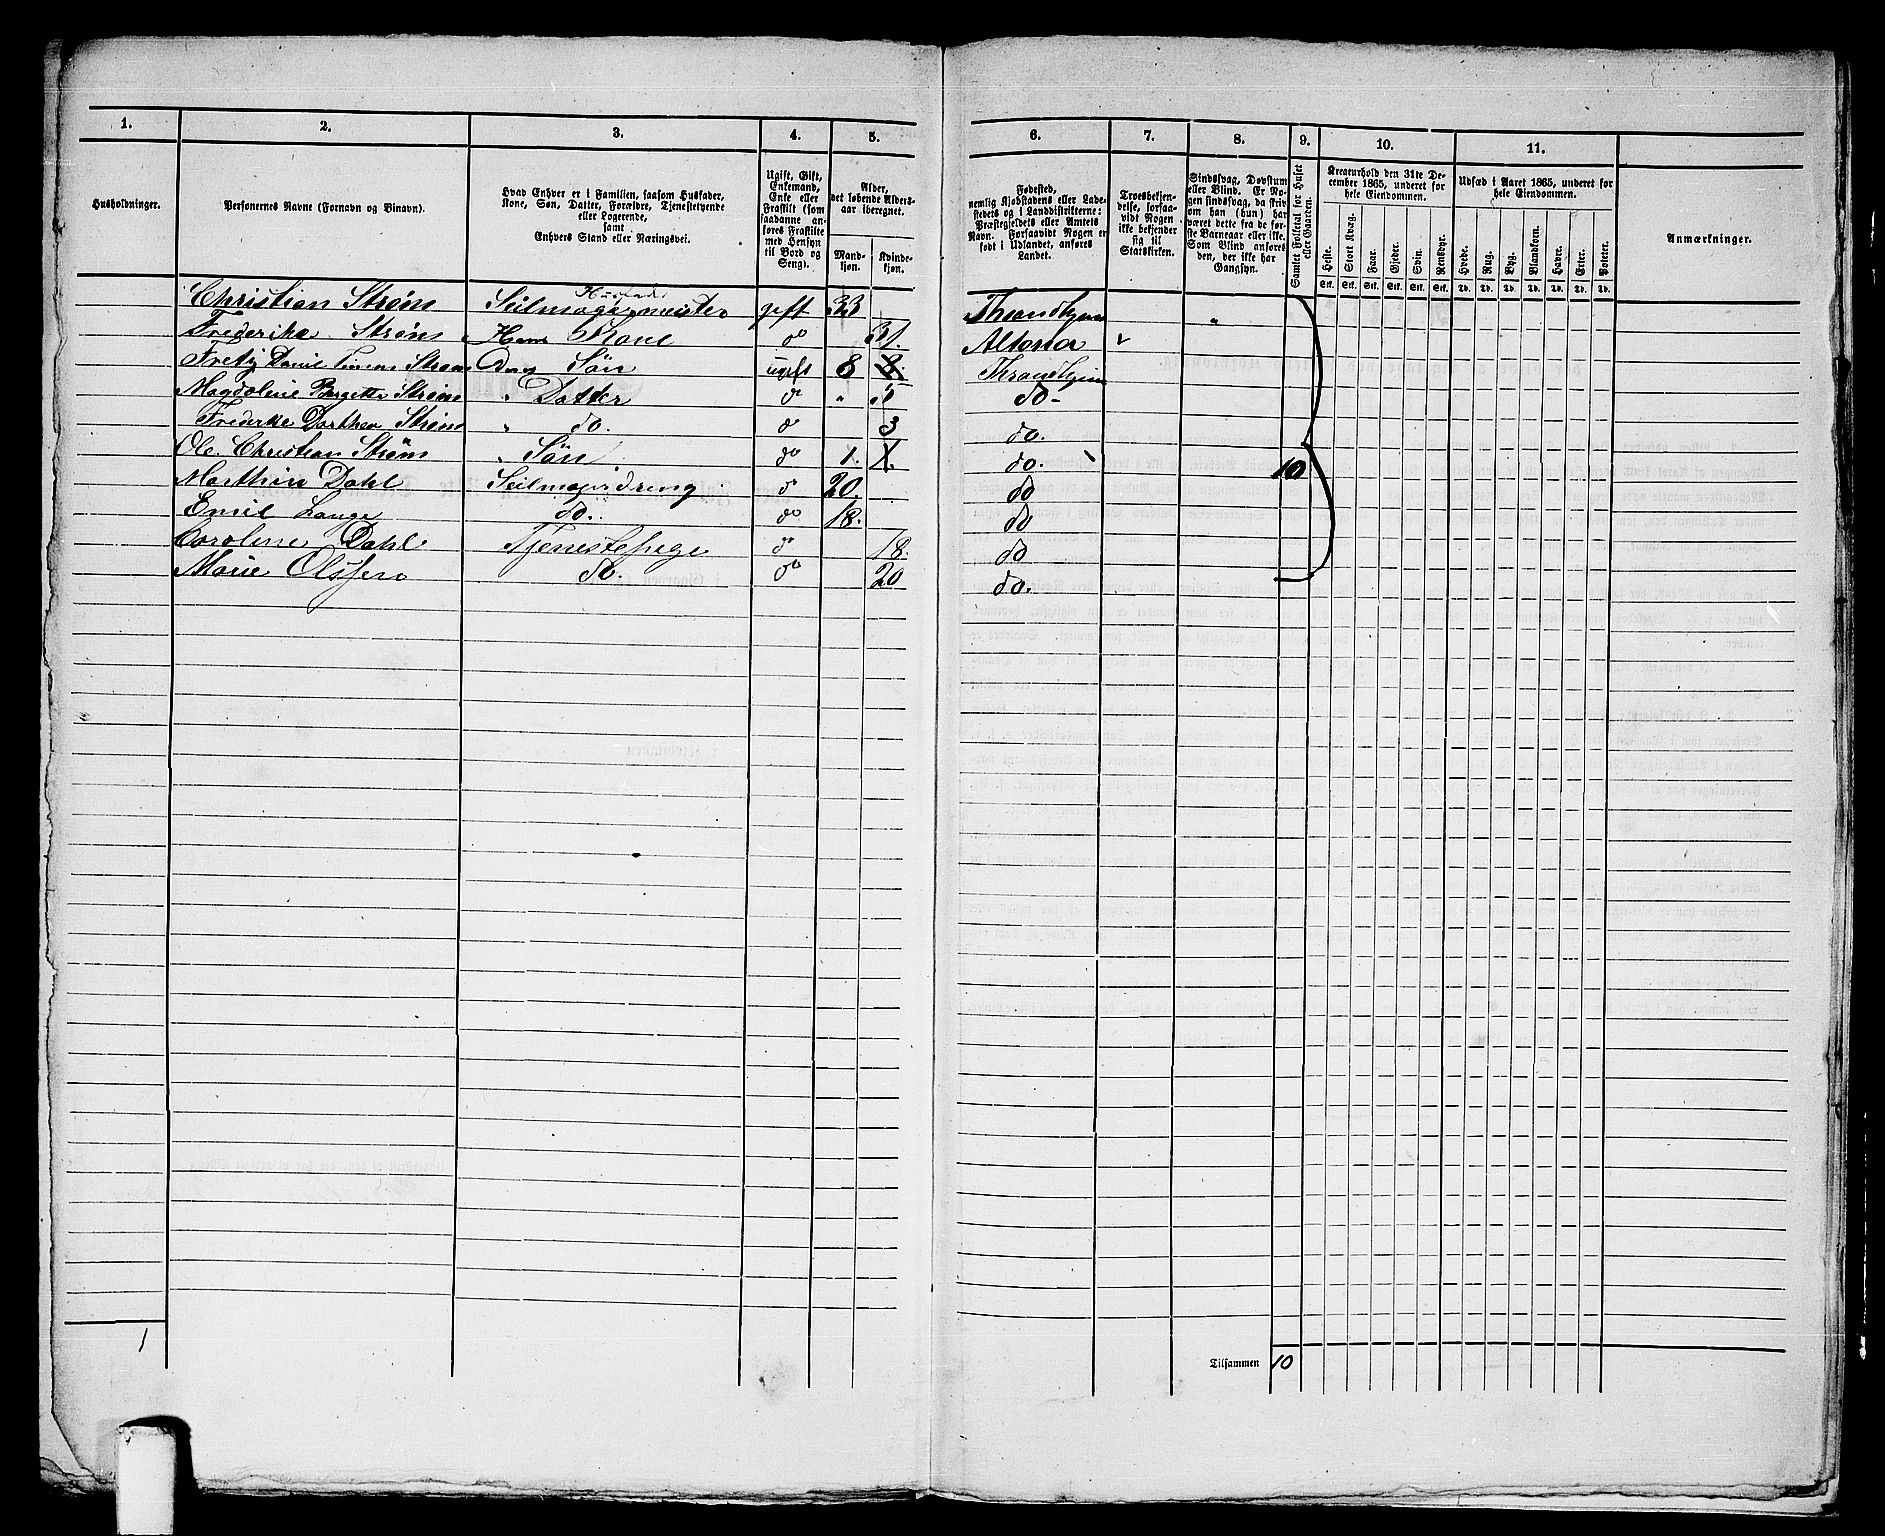 1. 2. 3. 4. 5. 6. 7. 8. 9. 10. 11.
Husholdninger.
Personernes Navne (Fornavn og Binavn).
Hvad Enhver er i Familien, saasom Husfader,
Kone, Søn, Datter, Forældre, Tjenestetyende
eller Logerende,
samt
Enhvers Stand eller Næringsvei.
Ugift, Gift,
Enkemand,
Enke eller
Fraskilt (som
saadanne an-
føres Fraskilte
med Hensyn
til Bord og
Seng).
Alder,
det løbende Alders-
aar iberegnet.
Mand-
kjøn.
Kvinde-
kjøn.
Fødested,
nemlig Kjøbstadens eller Lade-
stedets og i Landdistrikterne:
Præstegjeldets eller Amtets
Navn. Forsaavidt Nogen er
født i Udlandet, anføres
Landet.
Troesbekjen-
delse, forsaa-
vidt Nogen
ikke bekjender
sig til
Statskirken.
Sindssvag, Døvstum
eller Blind. Er No-
gen sindssvag, da skriv
om han (hun) har
været dette fra de før-
ste Barneaar eller ikke.
Som Blind anføres
den, der ikke har
Gangsyn.
Samlet Folketal for Huset
eller Gaarden.
Kreaturhold den 31te De-
cember 1865, underet for
hele Eiendommen.
Heste. Stort Kvæg. Faar. Gjeder. Svin. Rensdyr.
Stk. Stk. Stk. Stk. Stk. Stk.
Udsæd i Aaret 1865, underet for
hele Eiendommen.
Hvede. Rug. Byg. Blandkorn. Havre. Erter. Poteter.
Td. Td. Td. Td. Td. Td. Td.
Anmærkninger.
Husfader
Christian Strøm Seilmagermester gift 33 Throndhjem "
Frederikke Strøm Hans Kone do 31. Altona
Fritz Daniel Strøm Deres Søn ugift 8 8. Throndhjem
Magdoline Birgitte Strøm " Datter do " 5 do-
Frederke Dorthea Strøm " do. do 3 do.
Ole Christian Strøm " Søn do 1. 1. do. 10
Marthin Dahl Seilmagerdreng do 20. do
Emil Lange do. do 18. do
Caroline Dahl Tjenestepige do 18. do
Marie Olssen do. do 20 do.
1 Tilsammen 10